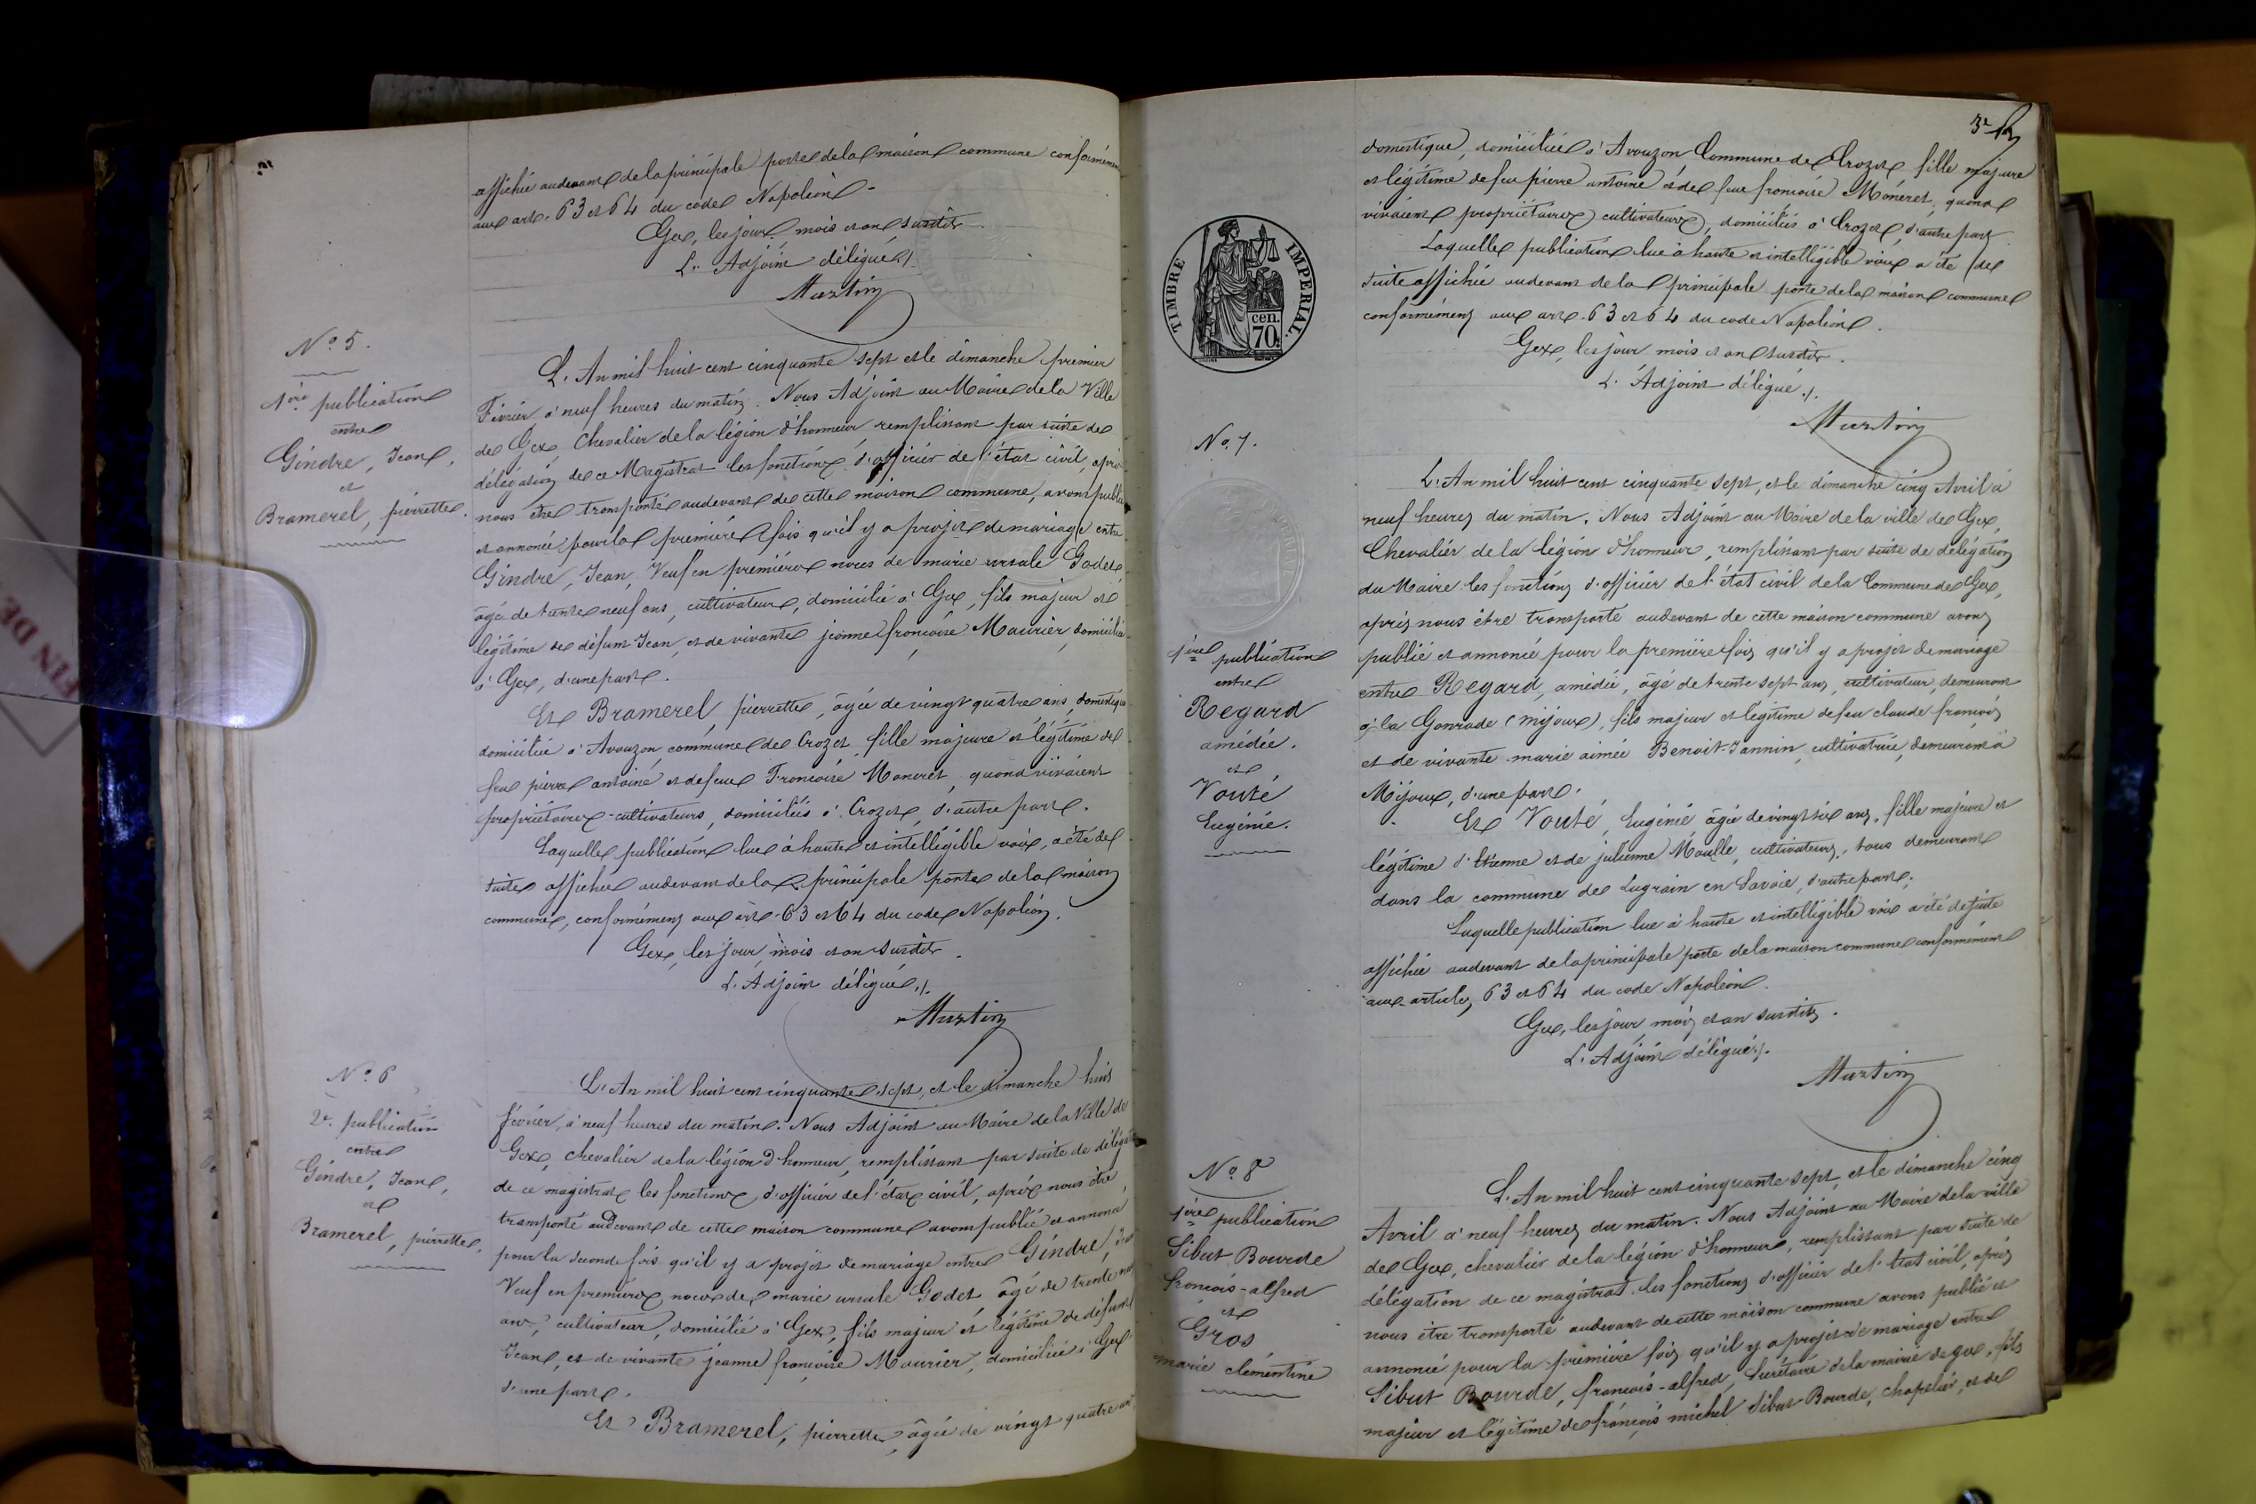 affichée audevant de la principale porte de la maison commune conformément
aux arts. 63 et 64 du code Napoléon.
Gex, les jour, mois et an susdits.
L'Adjoint délégué./.
Martin
N° 5.
1ère publication
entre
Gindre, Jean,
et
Bramerel, pierrette.
L'An mil huit cent cinquante sept et le dimanche premier
Février à neuf heures du matin. Nous Adjoint au Maire de la Ville
de Gex, Chevalier de la légion d'honneur remplissant par suite de
délégation de ce Magistrat les fonctions d'officier de l'état civil, après
nous être transporté audevant de cette maison commune, avons publié
et annoncé pour la première fois qu'il y a projet de mariage entre
Gindre, Jean, Veuf en premières noces de marie ursule Godet
âgé de trente neuf ans, cultivateur, domicilié à Gex, fils majeur et
légitime de défunt Jean, et de vivante jeanne françoise Maurier, domiciliée
à Gex, d'une part.
Et Bramerel, pierrette, âgée de vingt quatre ans, domestique
domiciliée à Avouzon, commune de Crozet, fille majeure et légitime de
feu pierre antoine et de feue Françoise Moneret, quand vivaient
propriétaires-cultivateurs, domiciliés à Crozet, d'autre part.
Laquelle publication lue à haute et intelligible voix, a été de
suite affichée audevant de la principale porte de la maison
commune, conformément aux arts. 63 et 64 du code Napoléon.
Gex, les jour, mois et an susdits.
L'Adjoint délégué./.
Martin
N° 6
2e. publication
entre
Gindre, Jean,
et
Bramerel, pierrette,
L'An mil huit cent cinquante sept, et le dimanche huit
février, à neuf heures du matin. Nous Adjoint au Maire de la Ville de
Gex, chevalier de la légion d'honneur, remplissant par suite de délégation
de ce magistrat les fonctions d'officier de l'état civil, après nous être
transporté audevant de cette maison commune avons publié et annoncé
pour la seconde fois qu'il y a projet de mariage entre Gindre, Jean
Veuf en premières noces de marie ursule Godet, âgé de trente neuf
ans, cultivateur, domicilié à Gex, fils majeur et légitime de défunt
Jean, et de vivante jeanne françoise Maurier, domiciliée à Gex
d'une part.
Et Bramerel, pierrette, âgée de vingt quatre ans
3e
domestique, domiciliée à Avouzon Commune de Crozet fille majeure
et légitime de feu pierre antoine et de feue françoise Moneret, quand
vivaient propriétaires cultivateurs, domiciliés à Crozet, d'autre part.
Laquelle publication lue à haute et intelligible voix a été de
suite affichée audevant de la principale porte de la maison commune
conformément aux arts. 63 et 64 du code Napoléon.
Gex, les jour mois et an susdits.
L'Adjoint délégué./.
Martin
TIMBRE IMPERIAL.
cen.
70.
N° 7.
1ère publication
entre
Regard
amédée.
et
Vouté
Eugénie.
L'An mil huit cent cinquante sept, et le dimanche cinq Avril à
neuf heures du matin. Nous Adjoint au Maire de la ville de Gex,
Chevalier de la légion d'honneur, remplissant par suite de délégation
du Maire les fonctions d'officier de l'état civil de la Commune de Gex,
après nous être transporté audevant de cette maison commune avons
publié et annoncé pour la première fois qu'il y a projet de mariage
entre Regard, amédée, âgé de trente sept ans, cultivateur, demeurant
à la Gonrade (Mijoux), fils majeur et légitime de feu claude françois
et de vivante marie aimée Benoit-Jannin, cultivatrice, demeurant à
Mijoux, d'une part.
Et Vouté, Eugénie âgée de vingt six ans, fille majeure et
légitime d'Etienne et de julienne Moulle, cultivateurs, tous demeurant
dans la commune de Lugrain en Savoie, d'autre part.
Laquelle publication lue à haute et intelligible voix a été de suite
affichée audevant de la principale porte de la maison commune conformément
aux articles 63 et 64 du code Napoléon.
Gex, les jour, mois et an susdits.
L'Adjoint délégué./.
Martin
N° 8
1ère publication
Sibut Bourde
francois-alfred
et
Gros
marie clémentine
L'An mil huit cent cinquante sept, et le dimanche cinq
Avril à neuf heures du matin. Nous Adjoint au Maire de la ville
de Gex, chevalier de la légion d'honneur, remplissant par suite de
délégation de ce magistrat les fonctions d'officier de l'état civil, après
nous être transporté audevant de cette maison commune avons publié et
annoncé pour la première fois qu'il y a projet de mariage entre
Sibut Bourde, francois-alfred, Secrétaire de la mairie de gex, fils
majeur et légitime de françois michel Sibut-Bourde, chapelier, et de